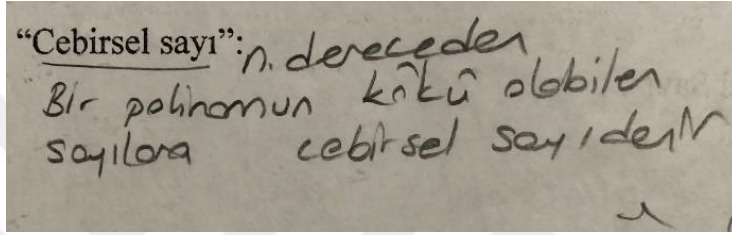 “Cebirsel sayı”: n. dereceden
Bir polinomun kökü olabilen
sayılara cebirsel sayı denir